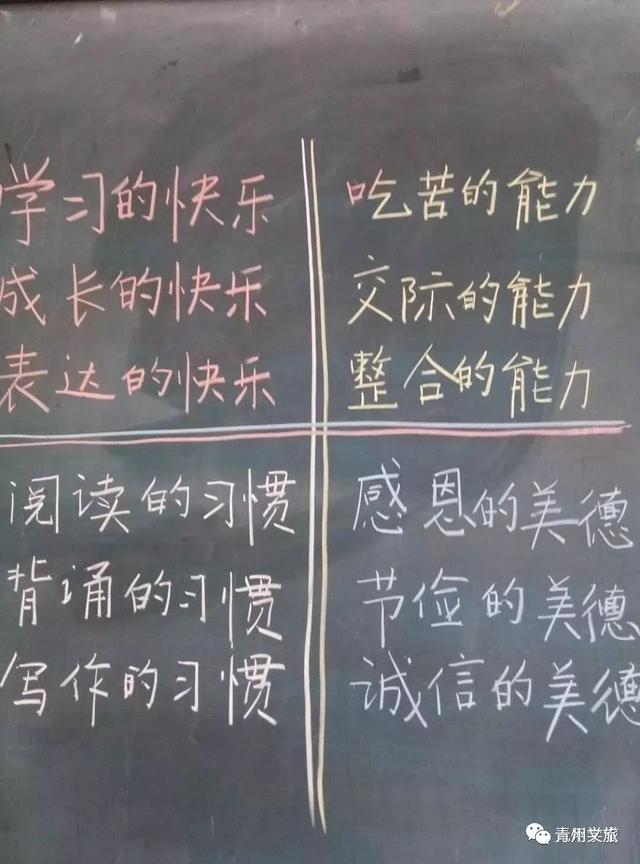 学习的快乐
成长的快乐
表达的快乐
吃苦的能力
交际的能力
整合的能力
阅读的习惯
背诵的习惯
写作的习惯
感恩的美德
节俭的美德
诚信的美德
青州文旅